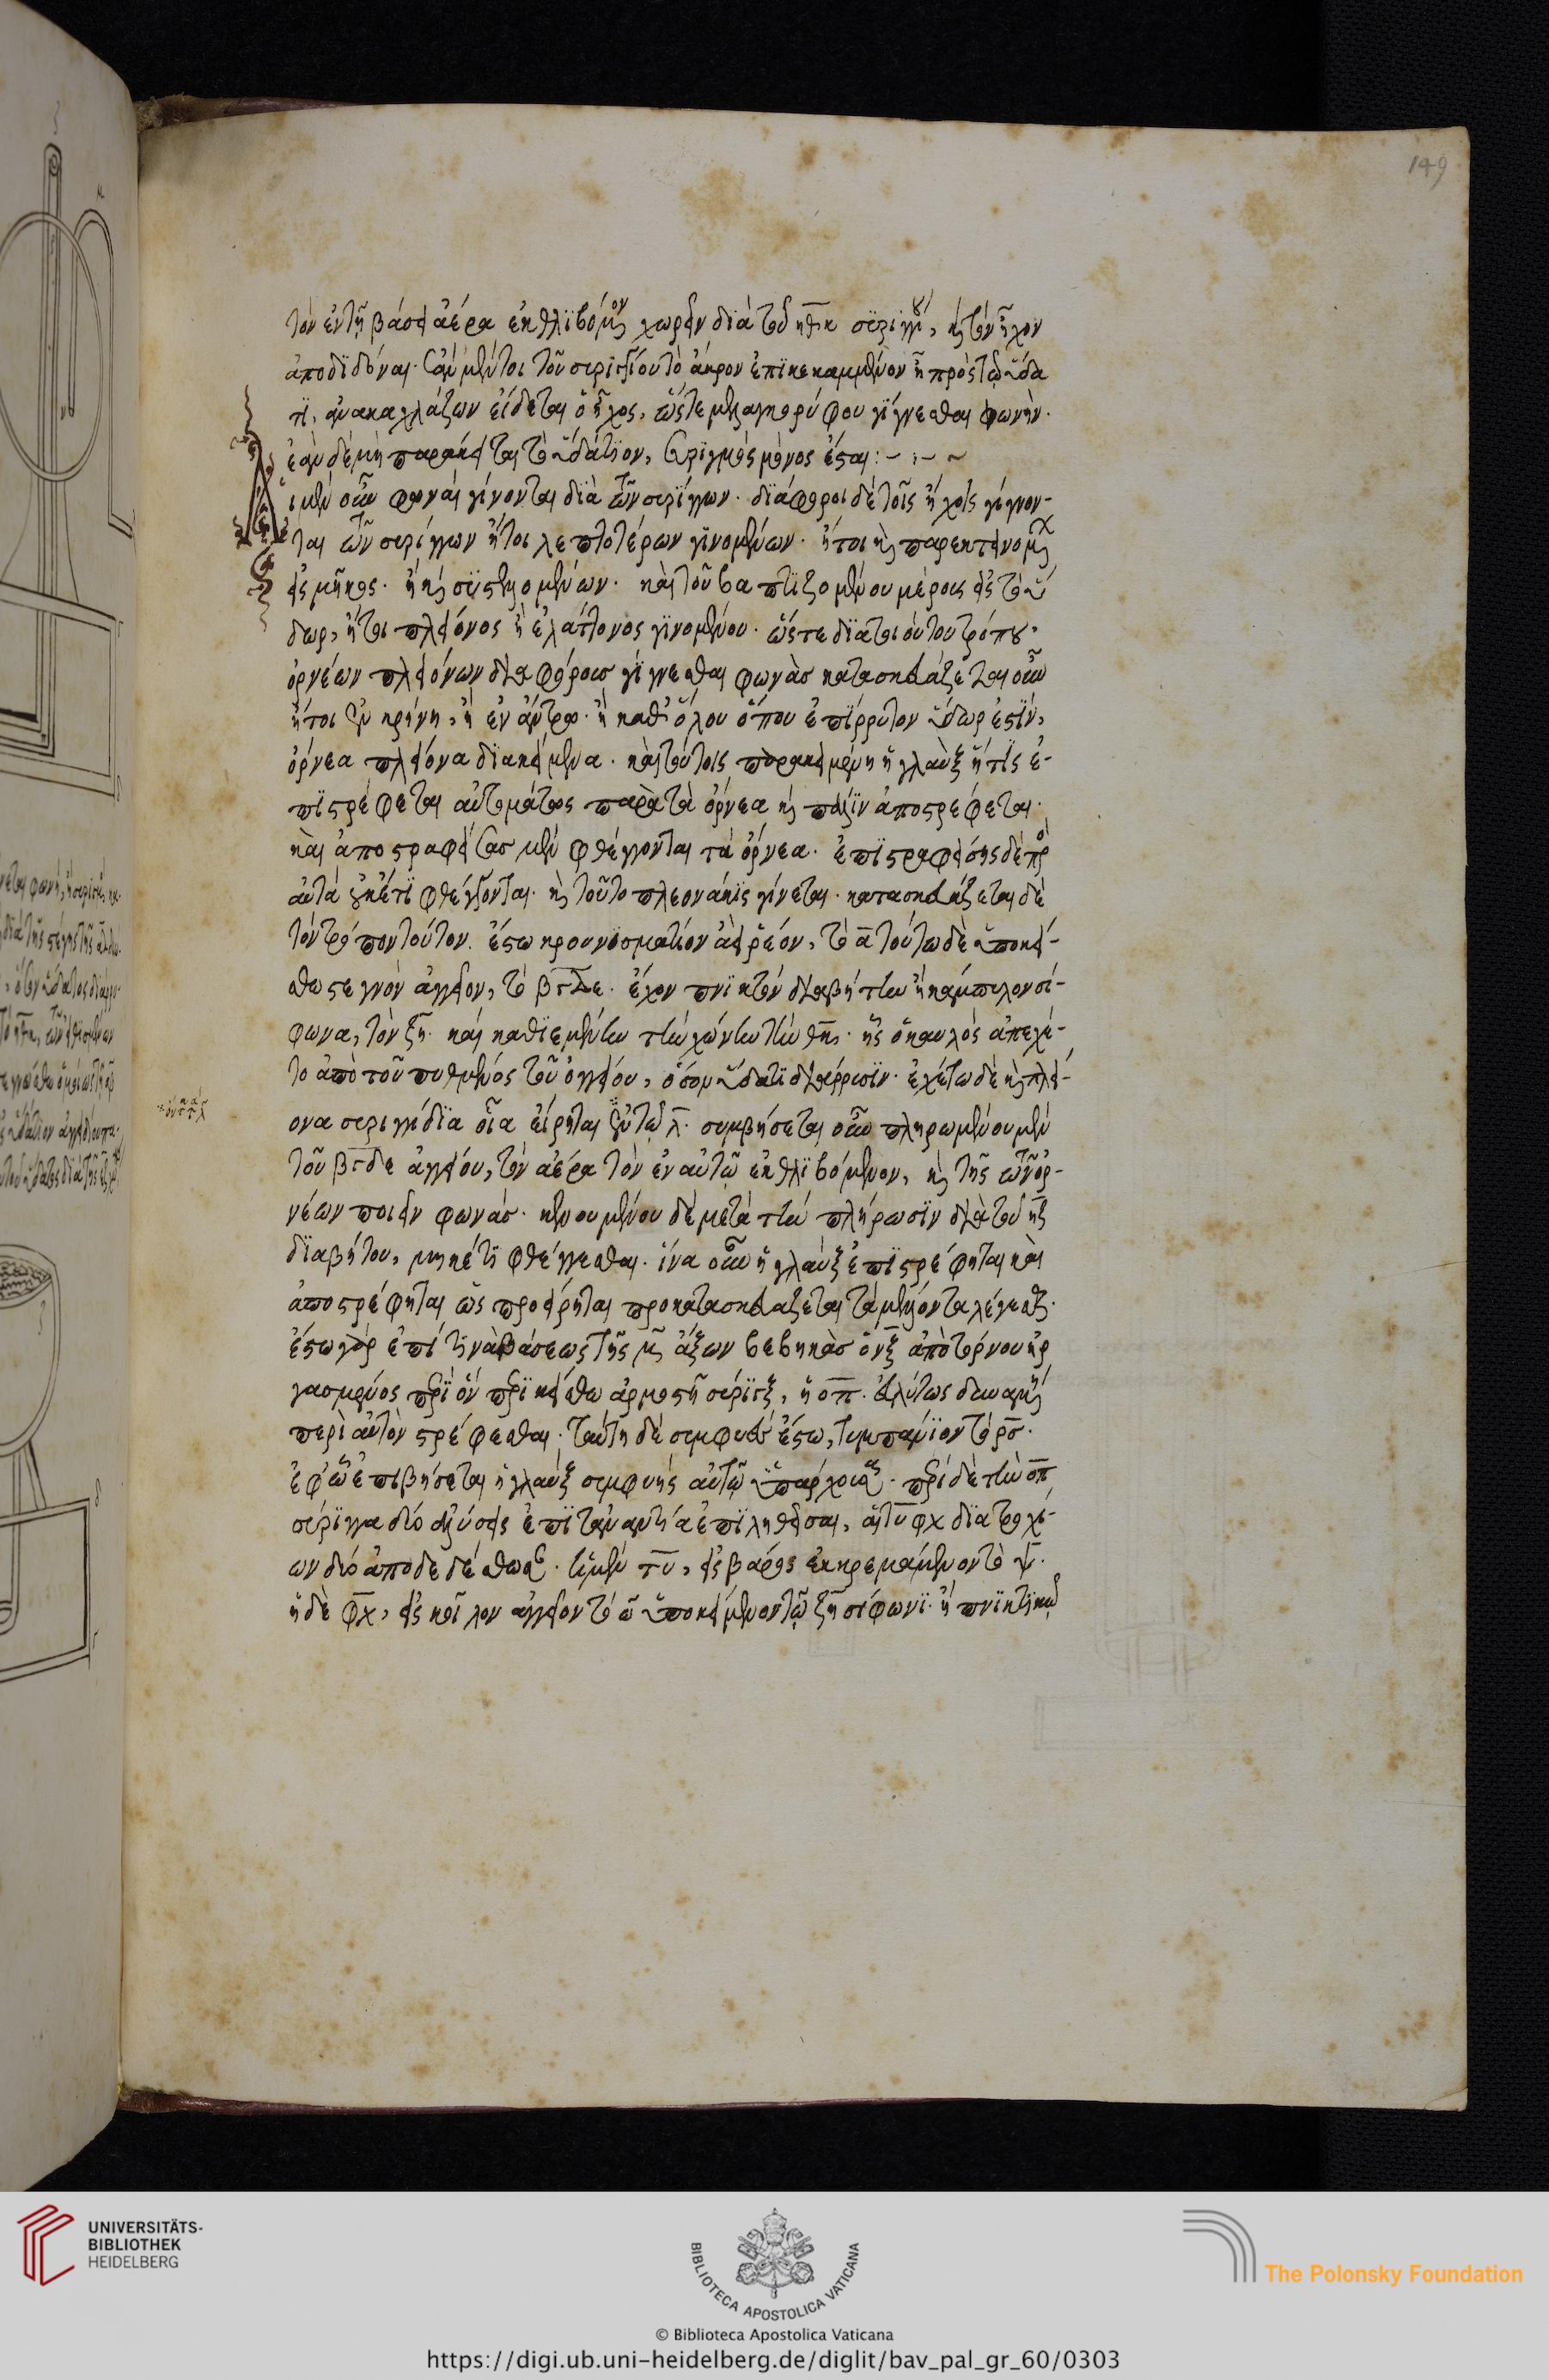 149
τὸν ἐν τῆ βάσει ἀέρα ἐκθλϊβόμενον χωρεῖν δϊὰ τοῦ ηθκ συριγγίου, καὶ τὸν ἦχον
ἀποδϊδόναι. ἐὰν μέντοι τοῦ συριγγίου τὸ ἄκρον ἐπϊκεκαμμένον ἦ πρὸς τῶ ὕδα
τϊ, ἀνακαχλάζων ὁ ἦχος, ὥστε μελαγκορύφου γίγνεσθαι φωνὴν.
ἐὰν δὲ μὴ παρακέηται τὸ ὑδάτϊον, συριγμὸς μόνος ἔσται:~
Αἱ μὲν οὖν φωναὶ γίνονται δϊὰ τῶν συρίγγων. δϊάφοροι δὲ τοῖς ἤχοις γίγνον-
ται τῶν συρίγγων ἤτοι λεπτοτέρων γϊνομένων. ἤτοι καὶ παρεκτεινομένων
εἰς μῆκος. ἢ καὶ συστελλομένων. καὶ τοῦ βαπτϊζομένου μέρους εἰς τὸ ὕ
δωρ, ἤτοι πλείονος ἢ ἐλάττονος γϊνομένου. ὥστε δϊὰ τοιούτου τρόπου
ὀρνέων πλειόνων διαφόρους γίγνεσθαι φωνὰς κατασκευάζεται οὖν
ἤτοι ἐν κρήνη, ἢ ἐν ἄντρω. ἢ καθ' ὅλου ὅπου ἐπίρρυτον ὕδωρ ἐστίν,
ὄρνεα πλείονα δϊακείμενα. καὶ τούτοις παρακειμένη ἡ γλαὺξ ἥτις ἐ-
πϊστρέφεται αὐτομάτως παρὰ τὰ ὄρνεα καὶ πάλϊν ἀποστρέφεται.
καὶ ἀποστραφείσας μὲν φθέγγονται τὰ ὄρνεα. ἐπϊστραφείσης δὲ πρὸς
αὐτὰ οὐκέτϊ φθέγγονται. καὶ τοῦτο πλεονάκις γίνεται. κατασκευάζεται δὲ
τὸν τρόπον τοῦτον. ἔστω κρουνϊσμάτϊον ἀεὶ ῥέον, τὸ α τούτω δὲ ὑποκεί-
σθω στεγνὸν ἀγγεῖον, τὸ βγδε. ἔχον πνϊκτὸν διαβήτην ἢ καμπύλον σί-
φωνα, τὸν ζη. καὶ καθϊεμένην τὴν χώνην τὴν θκ. ἧς ὁ καυλὸς ἀπεχέ-
τω ἀπὸ τοῦ πυθμένος τοῦ ἀγγείου, ὅσον ὕδατϊ διάρρυσϊν. ἐχέτω δὲ καὶ πλεί-
ονα συριγγίδϊα οἷα εἴρηται ἐν τῶ λ. συμβήσεται οὖν πληρωμένου μὲν
τοῦ βγδε ἀγγείου, τὸν ἀέρα τὸν ἐν αὐτῶ ἐκθλϊβόμενον, καὶ τῆς τῶν ὀρ-
νέων ποιεῖν φωνάς. κενουμένου δὲ μετὰ τὴν πλήρωσϊν διὰ τοῦ ηζ
δϊαβήτου, μηκέτϊ φθέγγεσθαι. ἵνα οὖν ἡ γλαὺξ ἐπϊστρέφηται καὶ
ἀποστρέφηται ὡς προείρηται προκατασκευάζεται τὰ μέλλοντα λέγεσθαι.
ἔστω γὰρ ἐπί τϊνα βάσεως τῆς μ ἄξων βεβηκὼς ὁ νξ ἀπὸ τόρνου εἰρ
γασμένος περὶ ὃν περϊκείσθω ἁρμοστὴ σύριγξ, ἡ οπ. εὐλύτως δυναμένη
περὶ αὐτὸν στρέφεσθαι. ταύτη δὲ συμφυὲς ἔστω, τυμπάνϊον τὸ ρσ.
ἐφ' ὧ ἐπιβήσεται ἡ γλαὺξ συμφυὴς αὐτῶ ὑπάρχουσα. περὶ δὲ τὴν οπ
σύρϊγγα δύο ἁλύσεις ἐπϊ τἀναντία ἐπϊληθεῖσαι, αἱ τυ φχ δϊὰ τροχι-
ων δύο ἀποδεδέσθωσαν. ἡ μὲν τυ, εἰς βάρος ἐκκρεμάμενον τὸ ψ.
ἡ δὲ φχ, εἰς κοῖλον ἀγγεῖον τὸ ω ὑποκείμενον τῶ ζη σίφωνϊ. ἢ πνϊκτικῶ
UNIVERSITÄTS-
BIBLIOTHEK
HEIDELBERG
BIBLIOTECA APOSTOLICA VATICANA
The Polonsky Foundation
© Biblioteca Apostolica Vaticana
https://digi.ub.uni-heidelberg.de/diglit/bav_pal_gr_60/0303